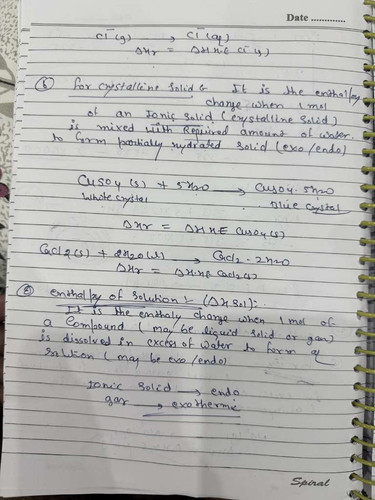 Date .............
Cl⁻(g) ⟶ Cl⁻(aq)
ΔHr = ΔHHE Cl⁻(g)
(b) for crystalline solid :- It is the enthalpy
change when 1 mol
of an Ionic solid (crystalline solid)
is mixed with Required amount of water.
to form partially hydrated solid (exo/endo)
CuSO4(s) + 5H2O ⟶ CuSO4·5H2O
white crystal Blue crystal
ΔHr = ΔHHE CuSO4(s)
CaCl2(s) + 2H2O(l) ⟶ CaCl2-2H2O
ΔHr = ΔHHE CaCl2(s)
enthalpy of solution :- (ΔH sol):-
It is the enthaly change when 1 mol of
a Compound (may be liquid solid or gan)
is dissolved in excess of water to form a
solution (may be exo/endo)
ionic solid ⟶ endo
gar ⟶ exothermic
Spiral